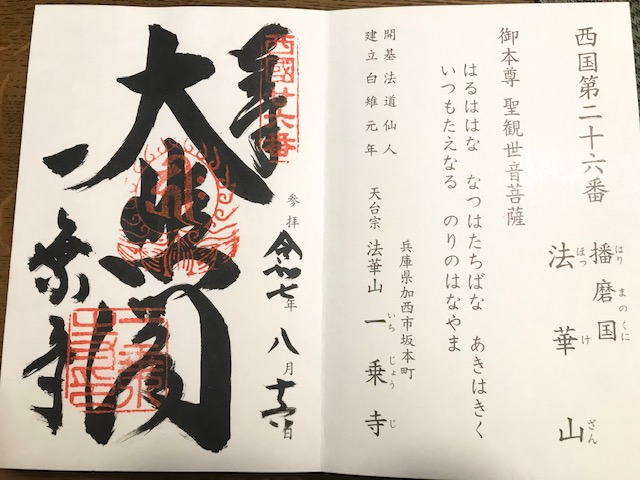 西国第二十六番
播磨国
はりまのくに
法華山
ほっけざん
御本尊 聖観世音菩薩
はるははな なつはたちばな あきはきく
いつもたえなる のりのはなやま
開基法道仙人
建立白雉元年
兵庫県加西市坂本町
天台宗 法華山 一乗寺
いちじょうじ
参拝 令和七年 八月 日
奉
西國廿六番
大悲閣
一乗寺